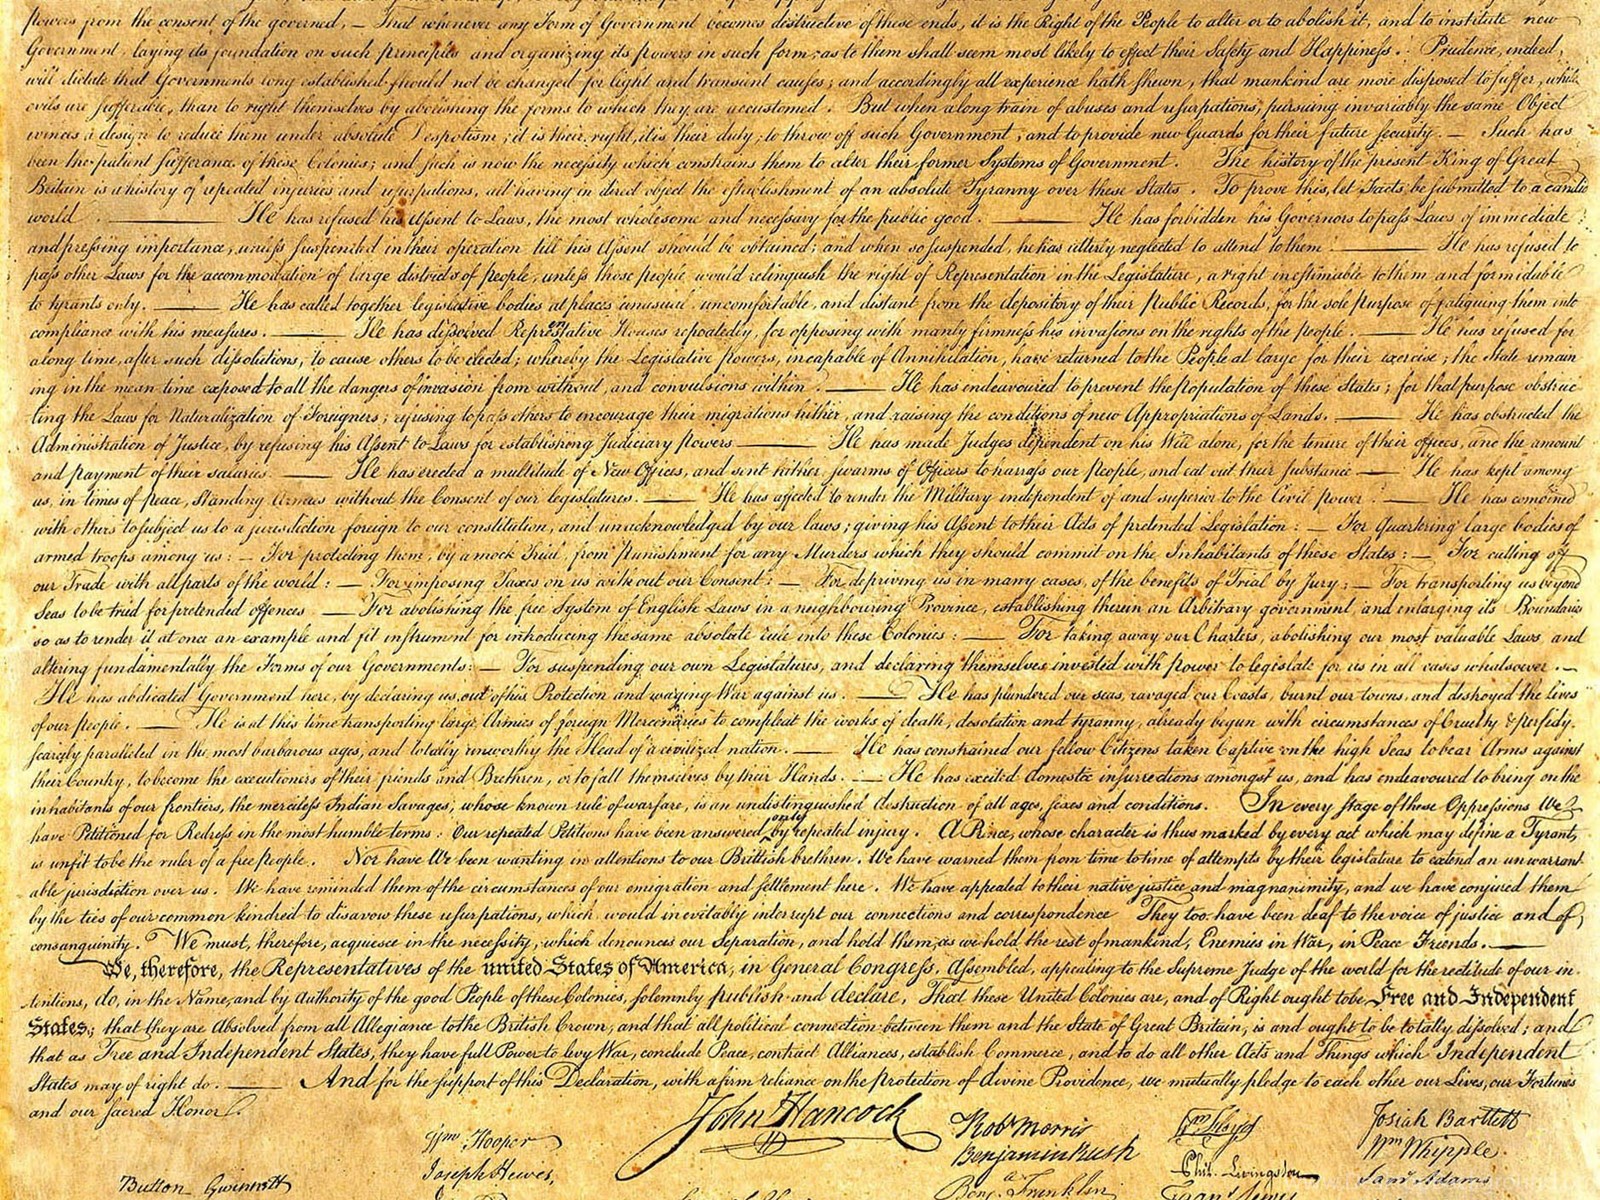 powers from the consent of the governed, — That whenever any Form of Government becomes destructive of these ends, it is the Right of the People to alter or to abolish it, and to institute new
Government, laying its foundation on such principles and organizing its powers in such form, as to them shall seem most likely to effect their Safety and Happiness. Prudence, indeed,
will dictate that Governments long established should not be changed for light and transient causes; and accordingly all experience hath shewn, that mankind are more disposed to suffer, while
evils are sufferable, than to right themselves by abolishing the forms to which they are accustomed. But when a long train of abuses and usurpations, pursuing invariably the same Object
evinces a design to reduce them under absolute Despotism, it is their right, it is their duty, to throw off such Government, and to provide new Guards for their future security. — Such has
been the patient sufferance of these Colonies; and such is now the necessity which constrains them to alter their former Systems of Government. The history of the present King of Great
Britain is a history of repeated injuries and usurpations, all having in direct object the establishment of an absolute Tyranny over these States. To prove this, let Facts be submitted to a candid
world. — He has refused his Assent to Laws, the most wholesome and necessary for the public good. — He has forbidden his Governors to pass Laws of immediate
and pressing importance, unless suspended in their operation till his Assent should be obtained; and when so suspended, he has utterly neglected to attend to them. — He has refused to
pass other Laws for the accommodation of large districts of people, unless those people would relinquish the right of Representation in the Legislature, a right inestimable to them and formidable
to tyrants only. — He has called together legislative bodies at places unusual, uncomfortable, and distant from the depository of their Public Records, for the sole purpose of fatiguing them into
compliance with his measures. — He has dissolved Representative Houses repeatedly, for opposing with manly firmness his invasions on the rights of the people. — He has refused for
a long time, after such dissolutions, to cause others to be elected; whereby the Legislative powers, incapable of Annihilation, have returned to the People at large for their exercise; the State remain
ing in the mean time exposed to all the dangers of invasion from without, and convulsions within. — He has endeavoured to prevent the population of these States; for that purpose obstruc
ting the Laws for Naturalization of Foreigners; refusing to pass others to encourage their migrations hither, and raising the conditions of new Appropriations of Lands. — He has obstructed the
Administration of Justice, by refusing his Assent to Laws for establishing Judiciary powers — He has made Judges dependent on his Will alone, for the tenure of their offices, and the amount
and payment of their salaries. — He has erected a multitude of New Offices, and sent hither swarms of Officers to harrass our people, and eat out their substance — He has kept among
us, in times of peace, Standing Armies without the Consent of our legislatures. — He has affected to render the Military independent of and superior to the Civil power. — He has combined
with others to subject us to a jurisdiction foreign to our constitution, and unacknowledged by our laws; giving his Assent to their Acts of pretended Legislation: — For Quartering large bodies of
armed troops among us: — For protecting them, by a mock Trial, from punishment for any Murders which they should commit on the Inhabitants of these States: — For cutting off
our Trade with all parts of the world: — For imposing Taxes on us without our Consent: — For depriving us in many cases, of the benefits of Trial by Jury: — For transporting us beyond
Seas to be tried for pretended offences — For abolishing the free System of English Laws in a neighbouring Province, establishing therein an Arbitrary government, and enlarging its Boundaries
so as to render it at once an example and fit instrument for introducing the same absolute rule into these Colonies: — For taking away our Charters, abolishing our most valuable Laws, and
altering fundamentally the Forms of our Governments: — For suspending our own Legislatures, and declaring themselves invested with power to legislate for us in all cases whatsoever. —
He has abdicated Government here, by declaring us out of his Protection and waging War against us. — He has plundered our seas, ravaged our Coasts, burnt our towns, and destroyed the lives
of our people. — He is at this time transporting large Armies of foreign Mercenaries to compleat the works of death, desolation and tyranny, already begun with circumstances of Cruelty & perfidy,
scarcely paralleled in the most barbarous ages, and totally unworthy the Head of a civilized nation. — He has constrained our fellow Citizens taken Captive on the high Seas to bear Arms against
their Country, to become the executioners of their friends and Brethren, or to fall themselves by their Hands. — He has excited domestic insurrections amongst us, and has endeavoured to bring on the
inhabitants of our frontiers, the merciless Indian Savages, whose known rule of warfare, is an undistinguished destruction of all ages, sexes and conditions. In every stage of these Oppressions We
have Petitioned for Redress in the most humble terms: Our repeated Petitions have been answered only by repeated injury. A Prince, whose character is thus marked by every act which may define a Tyrant,
is unfit to be the ruler of a free people. Nor have We been wanting in attentions to our Brittish brethren. We have warned them from time to time of attempts by their legislature to extend an unwarrant
able jurisdiction over us. We have reminded them of the circumstances of our emigration and settlement here. We have appealed to their native justice and magnanimity, and we have conjured them
by the ties of our common kindred to disavow these usurpations, which, would inevitably interrupt our connections and correspondence They too have been deaf to the voice of justice and of
consanguinity. We must, therefore, acquiesce in the necessity, which denounces our Separation, and hold them, as we hold the rest of mankind, Enemies in War, in Peace Friends. —
We, therefore, the Representatives of the united States of America, in General Congress, Assembled, appealing to the Supreme Judge of the world for the rectitude of our in
tentions, do, in the Name, and by Authority of the good People of these Colonies, solemnly publish and declare, That these United Colonies are, and of Right ought to be Free and Independent
States; that they are Absolved from all Allegiance to the British Crown, and that all political connection between them and the State of Great Britain, is and ought to be totally dissolved; and
that as Free and Independent States, they have full Power to levy War, conclude Peace, contract Alliances, establish Commerce, and to do all other Acts and Things which Independent
States may of right do. — And for the support of this Declaration, with a firm reliance on the protection of divine Providence, we mutually pledge to each other our Lives, our Fortunes
and our sacred Honor.
John Hancock
Robt Morris
Josiah Bartlett
Wm Hooper
Benjamin Rush
Wm Floyd
Wm Whipple
Joseph Hewes,
Phil. Livingston
Saml Adams
Button Gwinnett
Benj. Franklin